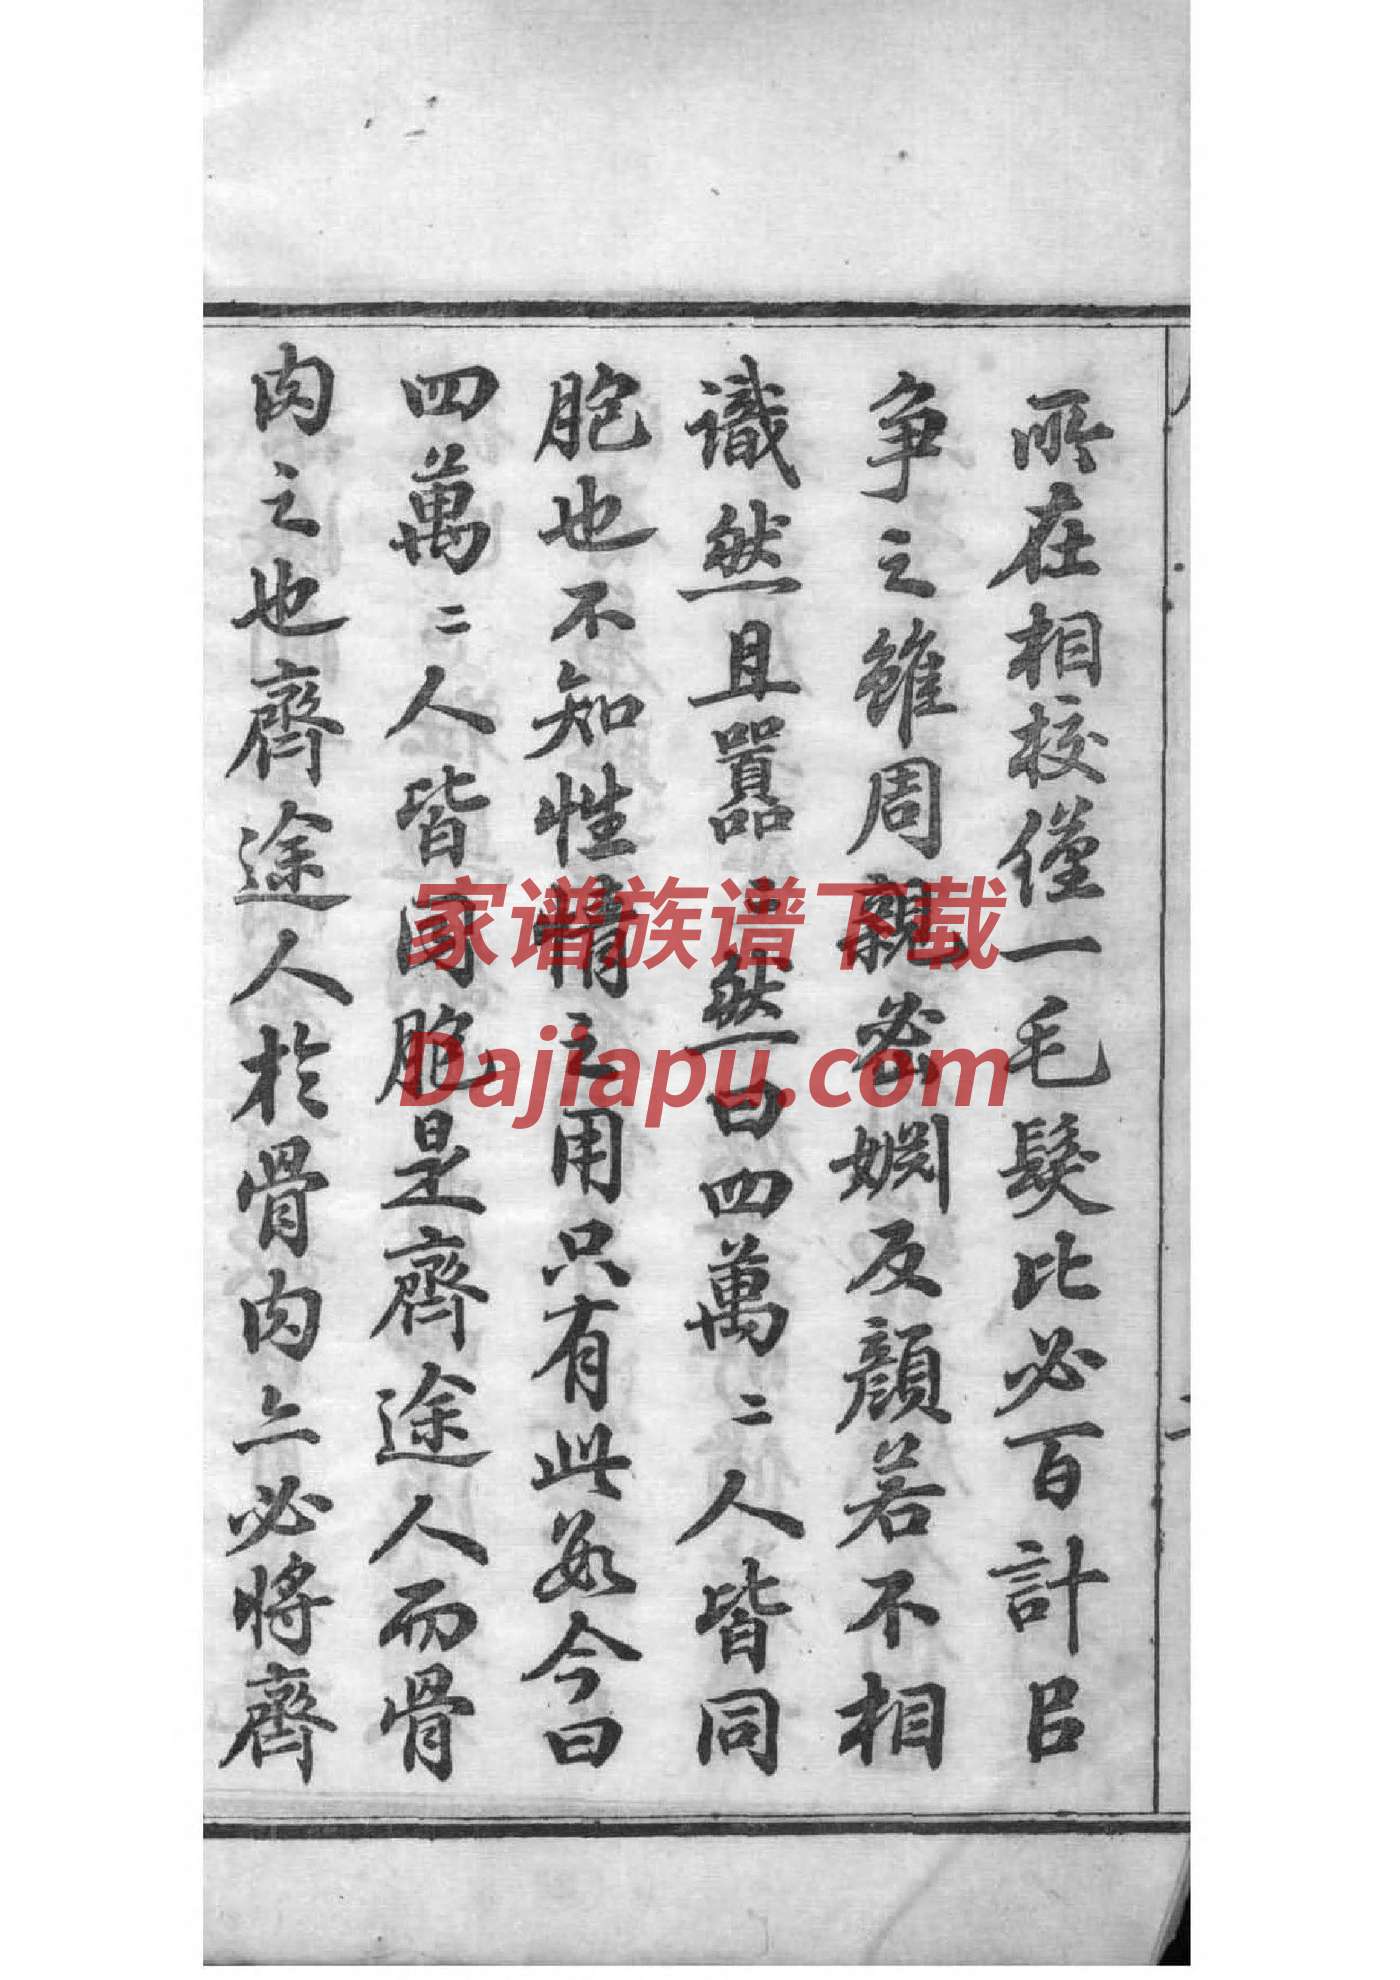 所在相校僅一毛髮比必百計㠯
争之雖周親密婣反顔若不相
識然且嚚〻然曰四萬二人皆同
胞也不知性情之用只有此數今曰
四萬二人皆同胞是齊途人而骨
肉之也齊途人於骨肉亦必將齊
家谱族谱下载
Dajiapu.com